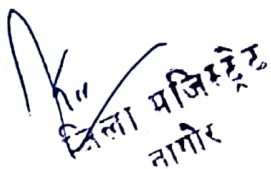 जिला मजिस्ट्रेट
नागौर